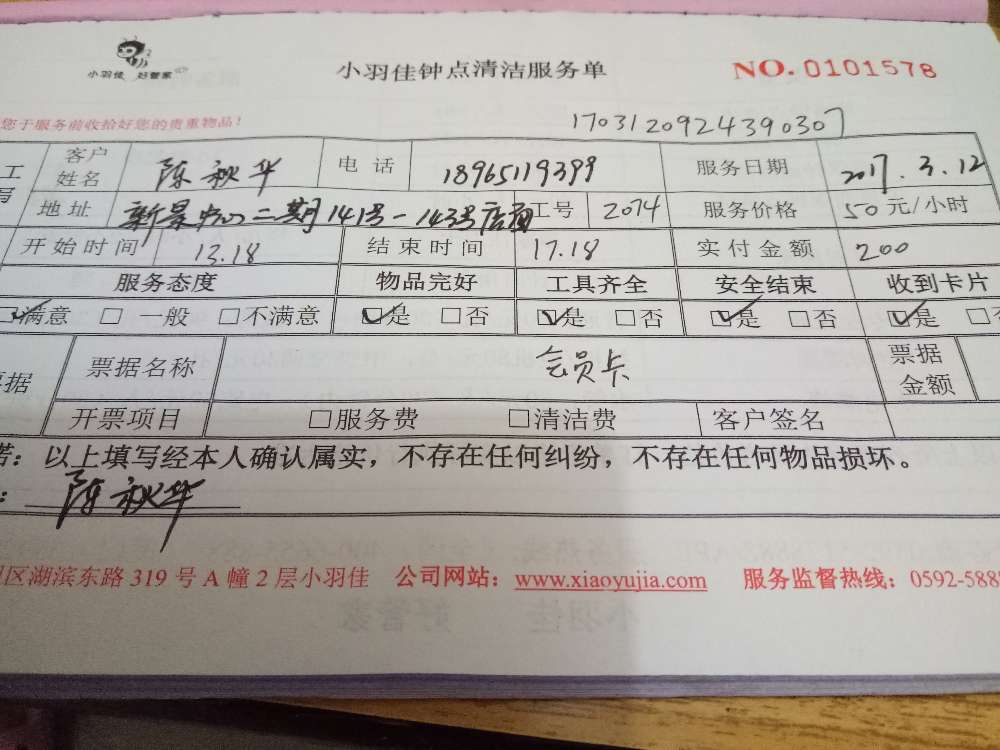 小羽佳 好管家
小羽佳钟点清洁服务单
NO. 0101578
您于服务前收拾好您的贵重物品!
1703120924390307
工 客户姓名 陈秋华 电话 18965119399 服务日期 2017.3.12
写 地址 新景中心二期141号-143号店面 工号 2074 服务价格 50元/小时
开始时间 13.18 结束时间 17.18 实付金额 200
服务态度 物品完好 工具齐全 安全结束 收到卡片
☑满意 □一般 □不满意 ☑是 □否 ☑是 □否 ☑是 □否 ☑是
据 票据名称 会员卡 票据金额
开票项目 □服务费 □清洁费 客户签名
诺：以上填写经本人确认属实，不存在任何纠纷，不存在任何物品损坏。
：陈秋华
区湖滨东路 319 号 A 幢 2 层小羽佳 公司网站：www.xiaoyujia.com 服务监督热线：0592-5888